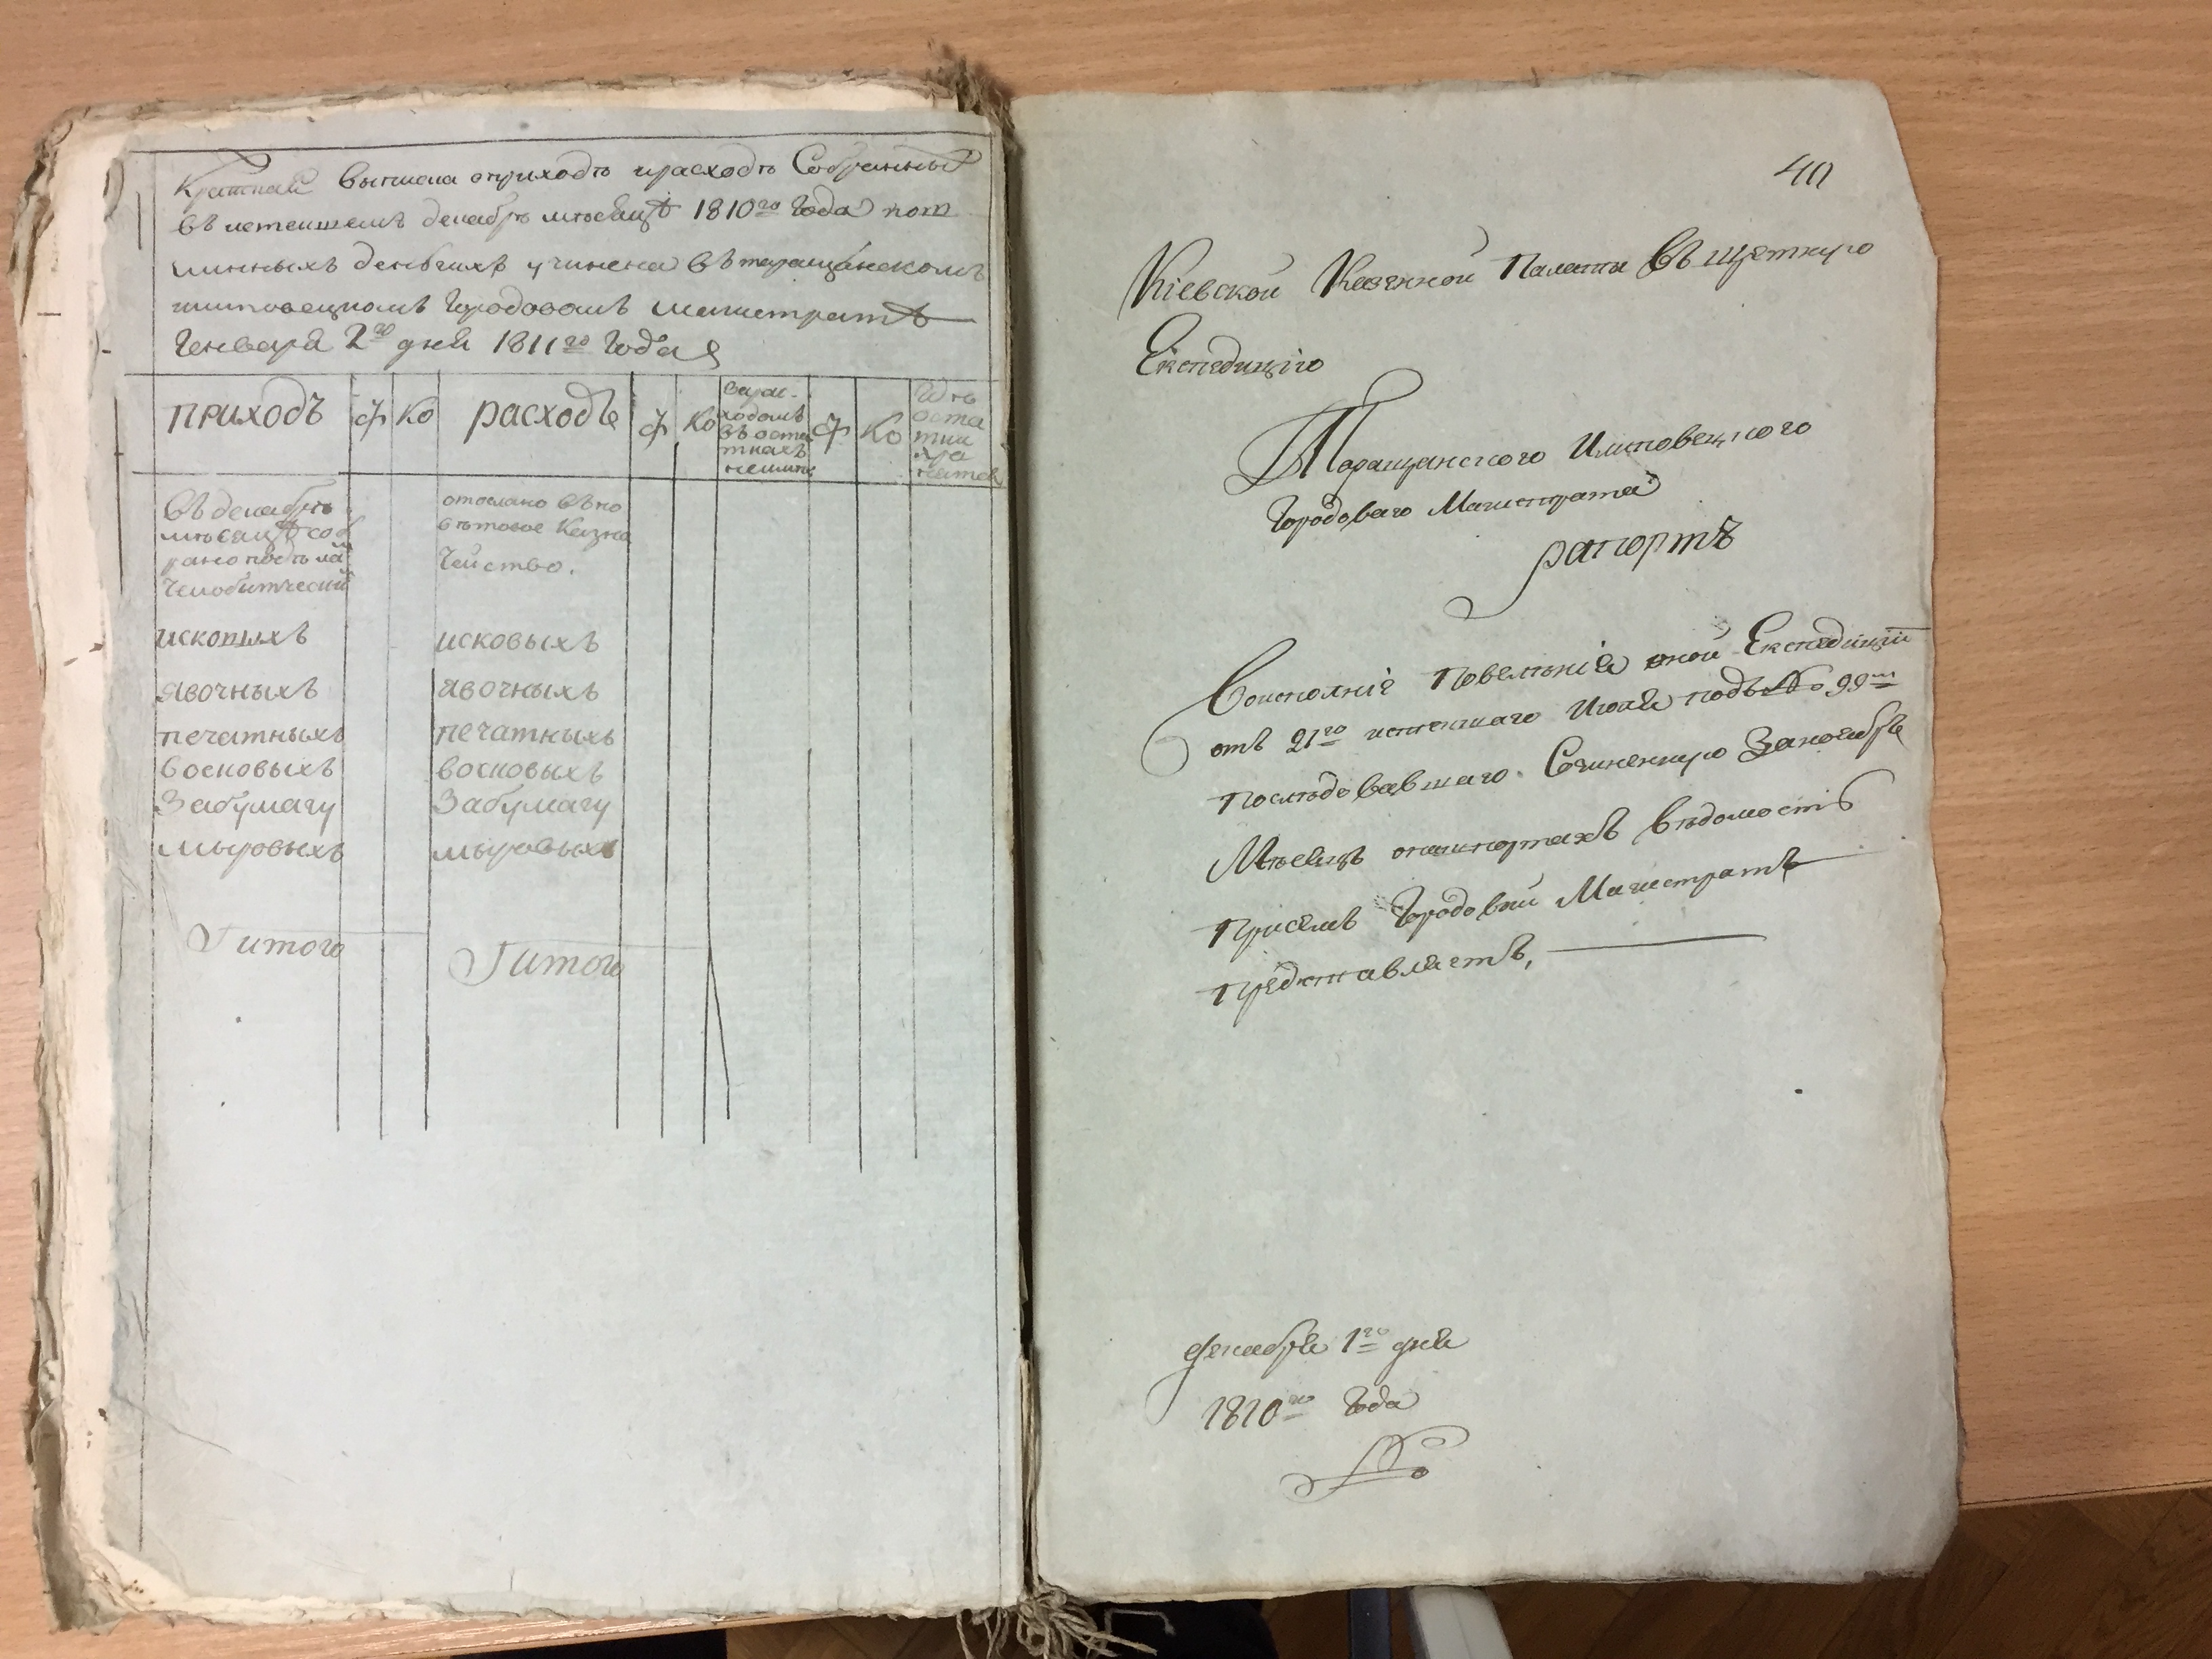 Краткая выписка оприходѣ ирасходѣ Собранныхъ
въ истекшемъ декабрѣ мѣсяцѣ 1810го Года пош
линныхъ денѣгахъ учинена въ таращанскомъ
городовомъ магистратѣ
Генваря 2го дня 1811го Года
приходъ ко расходъ ко ко
въ декабрѣ
мѣсяцѣ соб
рано
челобитческий
отослано въ по
вѣтовое Казна
чейство.
исковыхъ исковыхъ
явочныхъ явочныхъ
печатныхъ печатныхъ
восковыхъ восковыхъ
Забумагу Забумагу
мировыхъ мировыхъ
итого итого
40
Кіевской Казенной Палаты Въ Щетную
Експедицію
Таращанского
Городоваго Магистрата
рапортъ
Воисполніе Повелѣнія оной Експедиціи
отъ 21го истекшаго Июля подъ No 99мъ
Послѣдовавшаго. Сочиненную Заноябрь
Мѣсяцъ опашпортахъ вѣдомость
Присемъ Городовый Магистратъ
Представляетъ,
декабря 1го дня
1810го Года
No